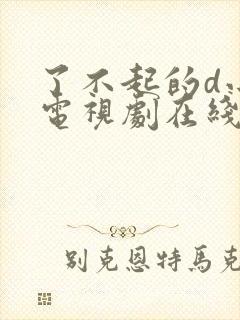 了不起的d
電視劇在綫
别克恩特馬克